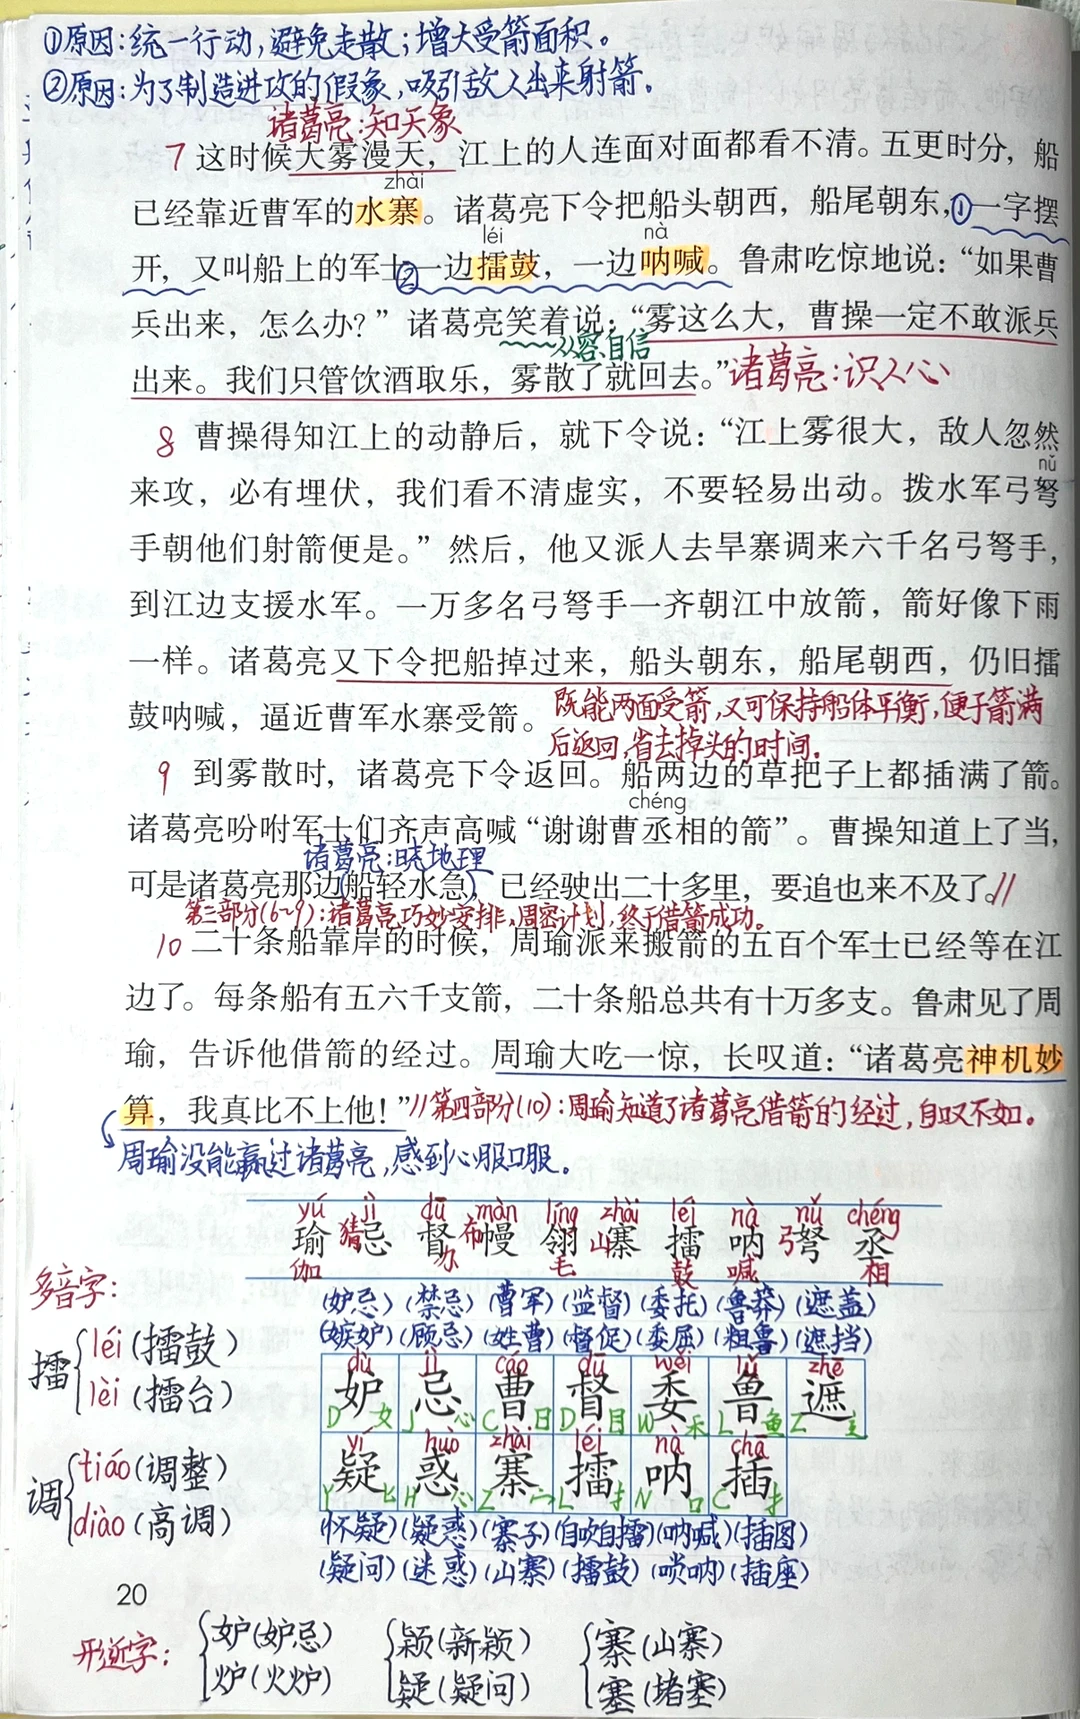 ①原因：统一行动，避免走散；增大受箭面积。
②原因：为了制造进攻的假象，吸引敌人出来射箭。
诸葛亮：知天象
7 这时候大雾漫天，江上的人连面对面都看不清。五更时分，船
zhài
已经靠近曹军的水寨。诸葛亮下令把船头朝西，船尾朝东，①一字摆
léi nà
开，又叫船上的军士②一边擂鼓，一边呐喊。鲁肃吃惊地说：“如果曹
兵出来，怎么办？”诸葛亮笑着说：“雾这么大，曹操一定不敢派兵
从容、自信
出来。我们只管饮酒取乐，雾散了就回去。”诸葛亮：识人心
8 曹操得知江上的动静后，就下令说：“江上雾很大，敌人忽然
nǔ
来攻，必有埋伏，我们看不清虚实，不要轻易出动。拨水军弓弩
手朝他们射箭便是。”然后，他又派人去旱寨调来六千名弓弩手，
到江边支援水军。一万多名弓弩手一齐朝江中放箭，箭好像下雨
一样。诸葛亮又下令把船掉过来，船头朝东，船尾朝西，仍旧擂
既能两面受箭，又可保持船体平衡，便于箭满
鼓呐喊，逼近曹军水寨受箭。
后返回，省去掉头的时间。
9 到雾散时，诸葛亮下令返回。船两边的草把子上都插满了箭。
chéng
诸葛亮吩咐军士们齐声高喊“谢谢曹丞相的箭”。曹操知道上了当，
诸葛亮：晓地理
可是诸葛亮那边(船轻水急)，已经驶出二十多里，要追也来不及了。//
第三部分(6~9)：诸葛亮巧妙安排、周密计划，终于借箭成功。
10 二十条船靠岸的时候，周瑜派来搬箭的五百个军士已经等在江
边了。每条船有五六千支箭，二十条船总共有十万多支。鲁肃见了周
瑜，告诉他借箭的经过。周瑜大吃一惊，长叹道：“诸葛亮神机妙
算，我真比不上他！”//第四部分(10)：周瑜知道了诸葛亮借箭的经过，自叹不如。
周瑜没能赢过诸葛亮，感到心服口服。
yú jì dū màn líng zhài léi nà nǔ chéng
瑜 猜忌 督 布幔 翎 山寨 擂 呐 弓弩 丞
伽 办 毛 鼓 喊 相
多音字：
(妒忌)(禁忌)(曹军)(监督)(委托)(鲁莽)(遮盖)
(嫉妒)(顾忌)(姓曹)(督促)(委屈)(粗鲁)(遮挡)
擂 léi(擂鼓)
lèi(擂台)
dù jì cáo dū wěi lǔ zhē
妒 忌 曹 督 委 鲁 遮
D 女 J 心 C 日 D 目 W 禾 L 鱼 Z 辶
yí huò zhài léi nà chā
疑 惑 寨 擂 呐 插
Y 匕 H 心 Z 宀 L 扌 N 口 C 扌
调 tiáo(调整)
diào(高调)
(怀疑)(疑惑)(寨子)(自吹自擂)(呐喊)(插图)
(疑问)(迷惑)(山寨)(擂鼓)(唢呐)(插座)
20
形近字：
妒(妒忌) 颖(新颖) 寨(山寨)
炉(火炉) 疑(疑问) 塞(堵塞)